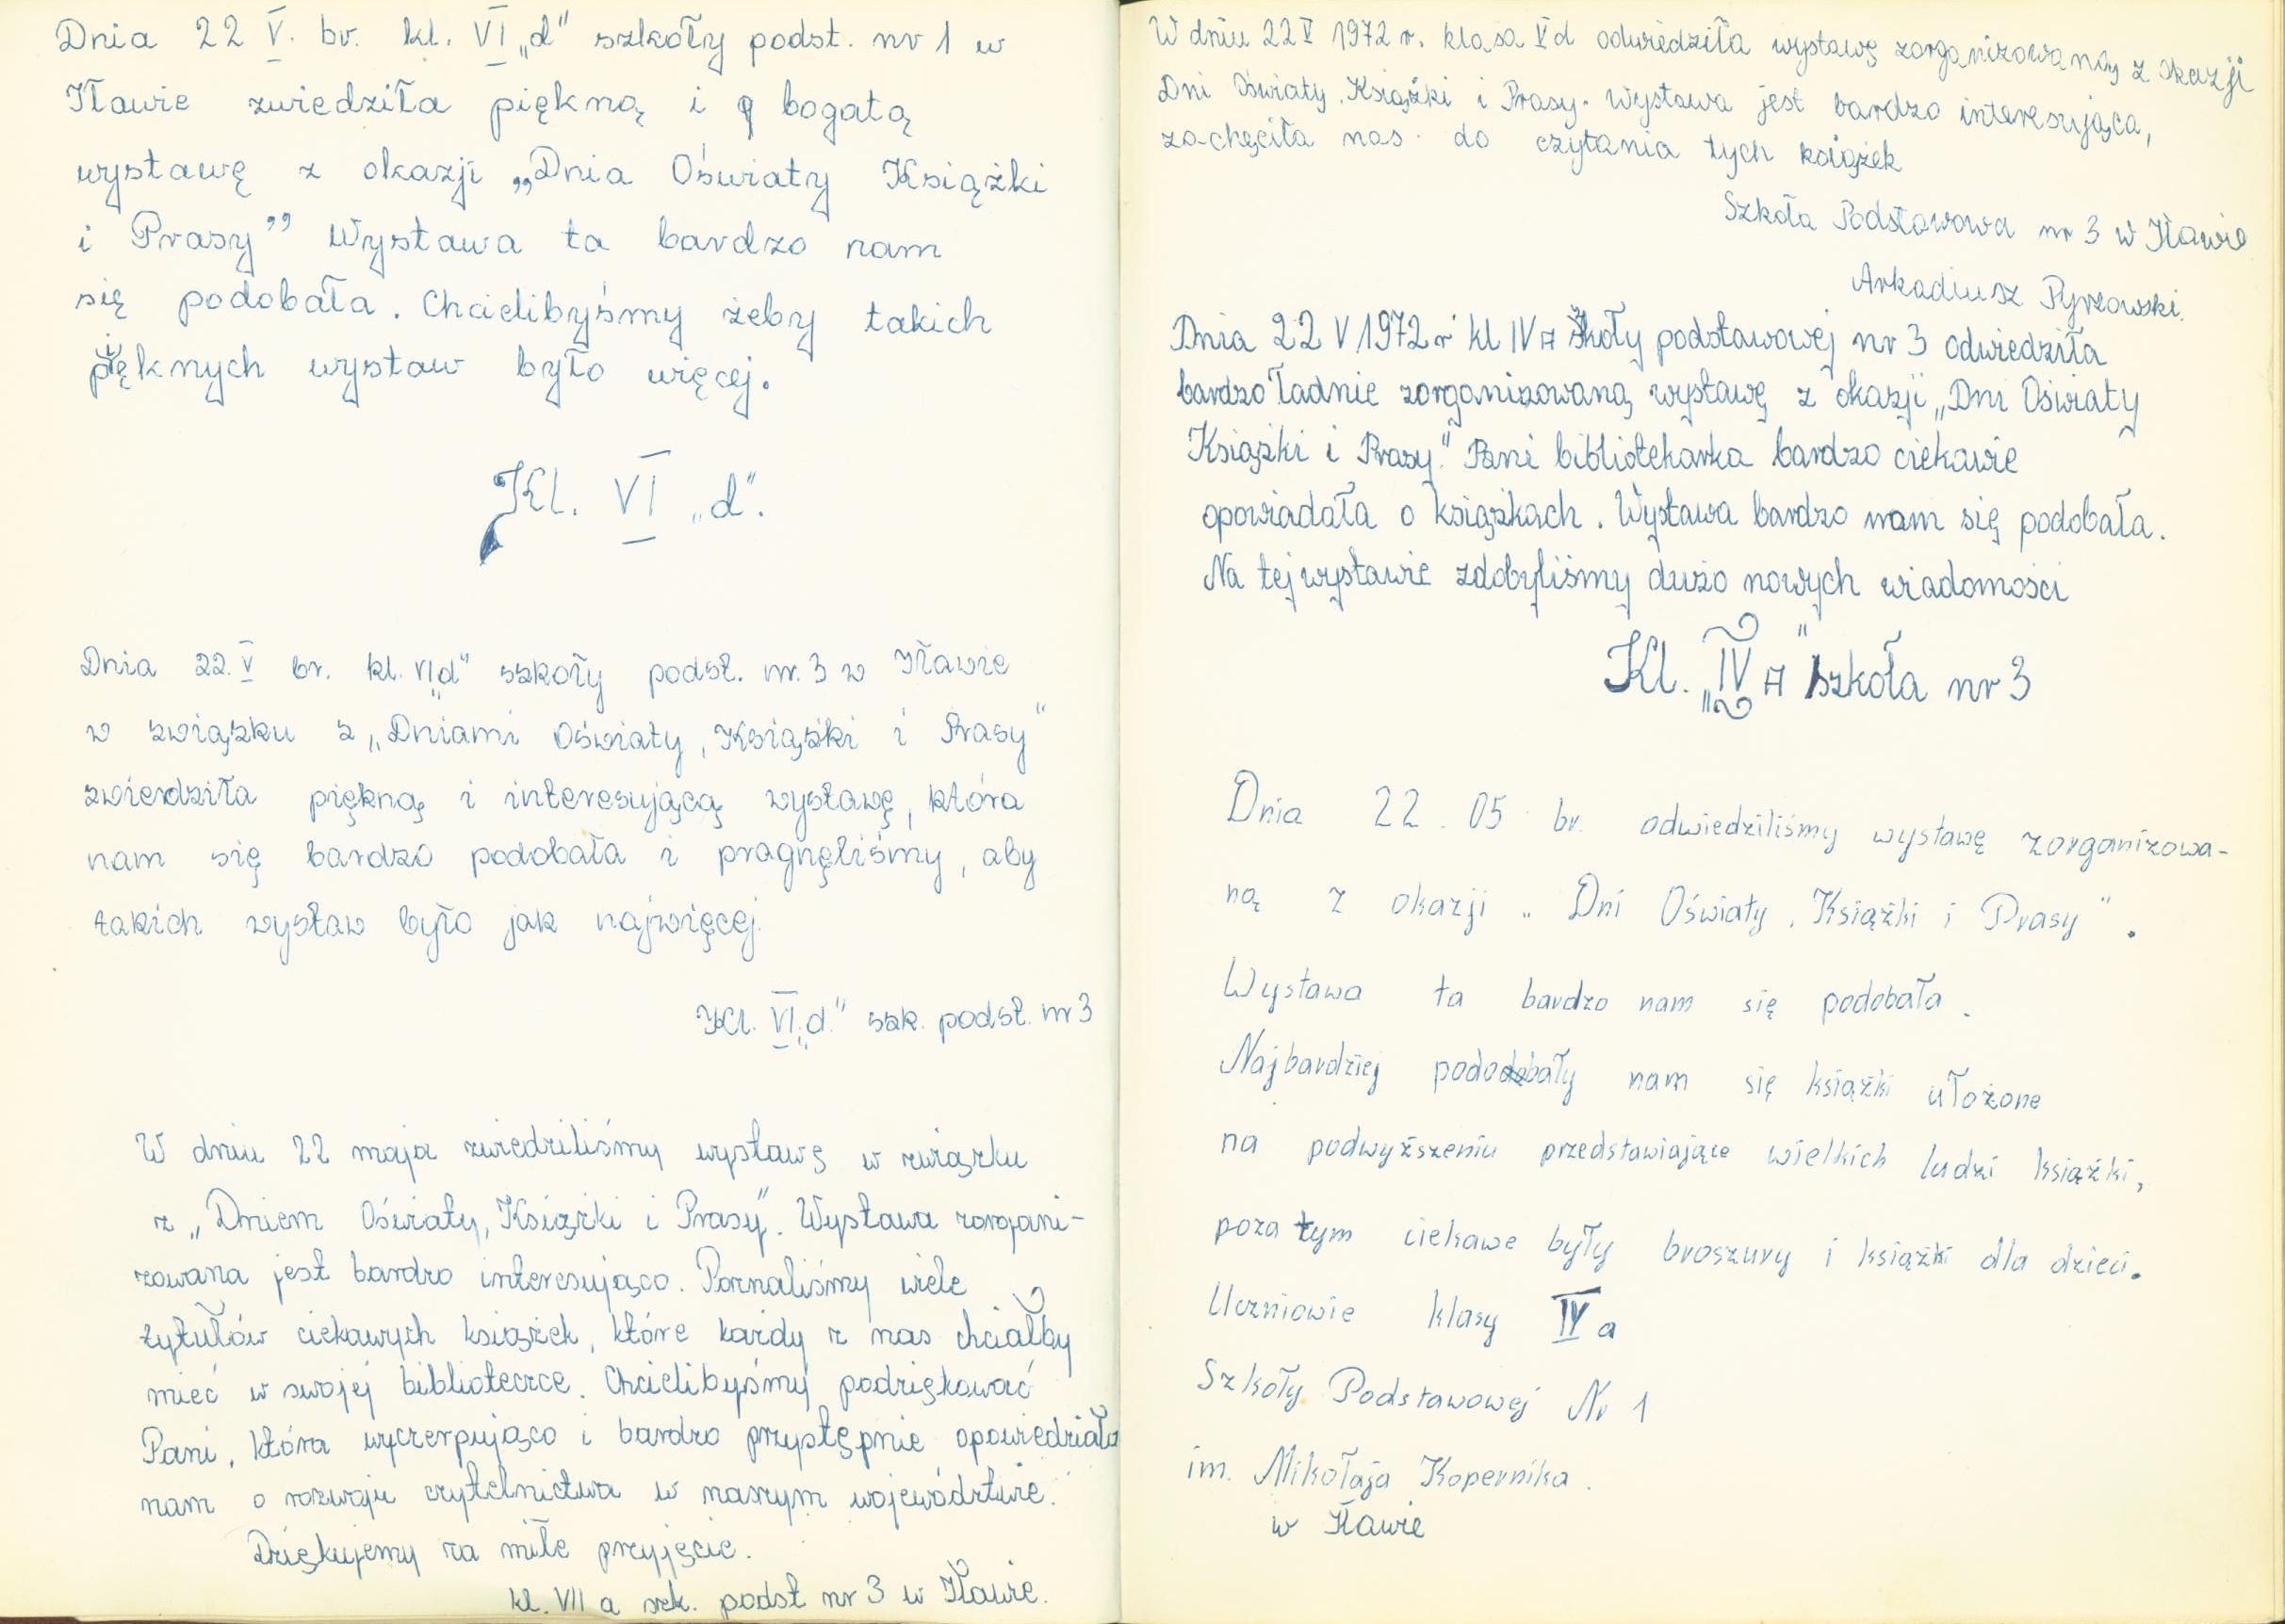 Dnia 22 V. br. kl. VI „d” szkoły podst. nr 1 w
Iławie zwiedziła piękną i bogatą
wystawę z okazji „Dnia Oświaty Książki
i Prasy” Wystawa ta bardzo nam
się podobała. Chcielibyśmy żeby takich
pięknych wystaw było więcej.
Kl. VI „d”.
Dnia 22. V br. kl. VI„d” szkoły podst. nr. 3 w Iławie
w związku z „Dniami Oświaty, Książki i Prasy”
zwierdziła piękną i interesującą wystawę, która
nam się bardzo podobała i pragnęliśmy, aby
takich wystaw było jak najwięcej.
Kl. VI„d.” szk. podst. nr 3
W dniu 22 maja zwiedziliśmy wystawę w związku
z „Dniem Oświaty, Książki i Prasy”. Wystawa zorgani-
zowana jest bardzo interesująco. Poznaliśmy wiele
tytułów ciekawych książek, które każdy z nas chciałby
mieć w swojej biblioteczce. Chcielibyśmy podziękować
Pani, która wyczerpująco i bardzo przystępnie opowiedziała
nam o rozwoju czytelnictwa w naszym województwie.
Dziękujemy za miłe przyjęcie.
kl. VII a szk. podst nr 3 w Iławie.
W dniu 22 V 1972 r. klasa V d odwiedziła wystawę zorganizowaną z okazji
Dni Oświaty, Książki i Prasy. Wystawa jest bardzo interesująca,
zachęciła nas do czytania tych książek
Szkoła Podstawowa nr 3 w Iławie
Arkadiusz Pyrzowski.
Dnia 22 V 1972 r kl IV A Szkoły podstawowej nr 3 odwiedziła
bardzo ładnie zorganizowaną wystawę z okazji „Dni Oświaty
Książki i Prasy.” Pani bibliotekarka bardzo ciekawie
opowiadała o książkach. Wystawa bardzo nam się podobała.
Na tej wystawie zdobyliśmy dużo nowych wiadomości
Kl. „IV A” szkoła nr 3
Dnia 22. 05 br. odwiedziliśmy wystawę zorganizowa-
ną z okazji „Dni Oświaty, Książki i Prasy”.
Wystawa ta bardzo nam się podobała.
Najbardziej podobały nam się książki ułożone
na podwyższeniu przedstawiające wielkich ludzi książki,
poza tym ciekawe były broszury i książki dla dzieci.
Uczniowie klasy IV a
Szkoły Podstawowej Nr 1
im. Mikołaja Kopernika.
w Iławie